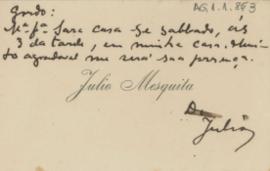 AG.1.1.853
Gordo:
Mª. fª. Sara casa-se sabbado, ás
3 da tarde, em minha casa. Mui-
to agradavel me será sua presença.
Julio Mesquita
Do
Julio